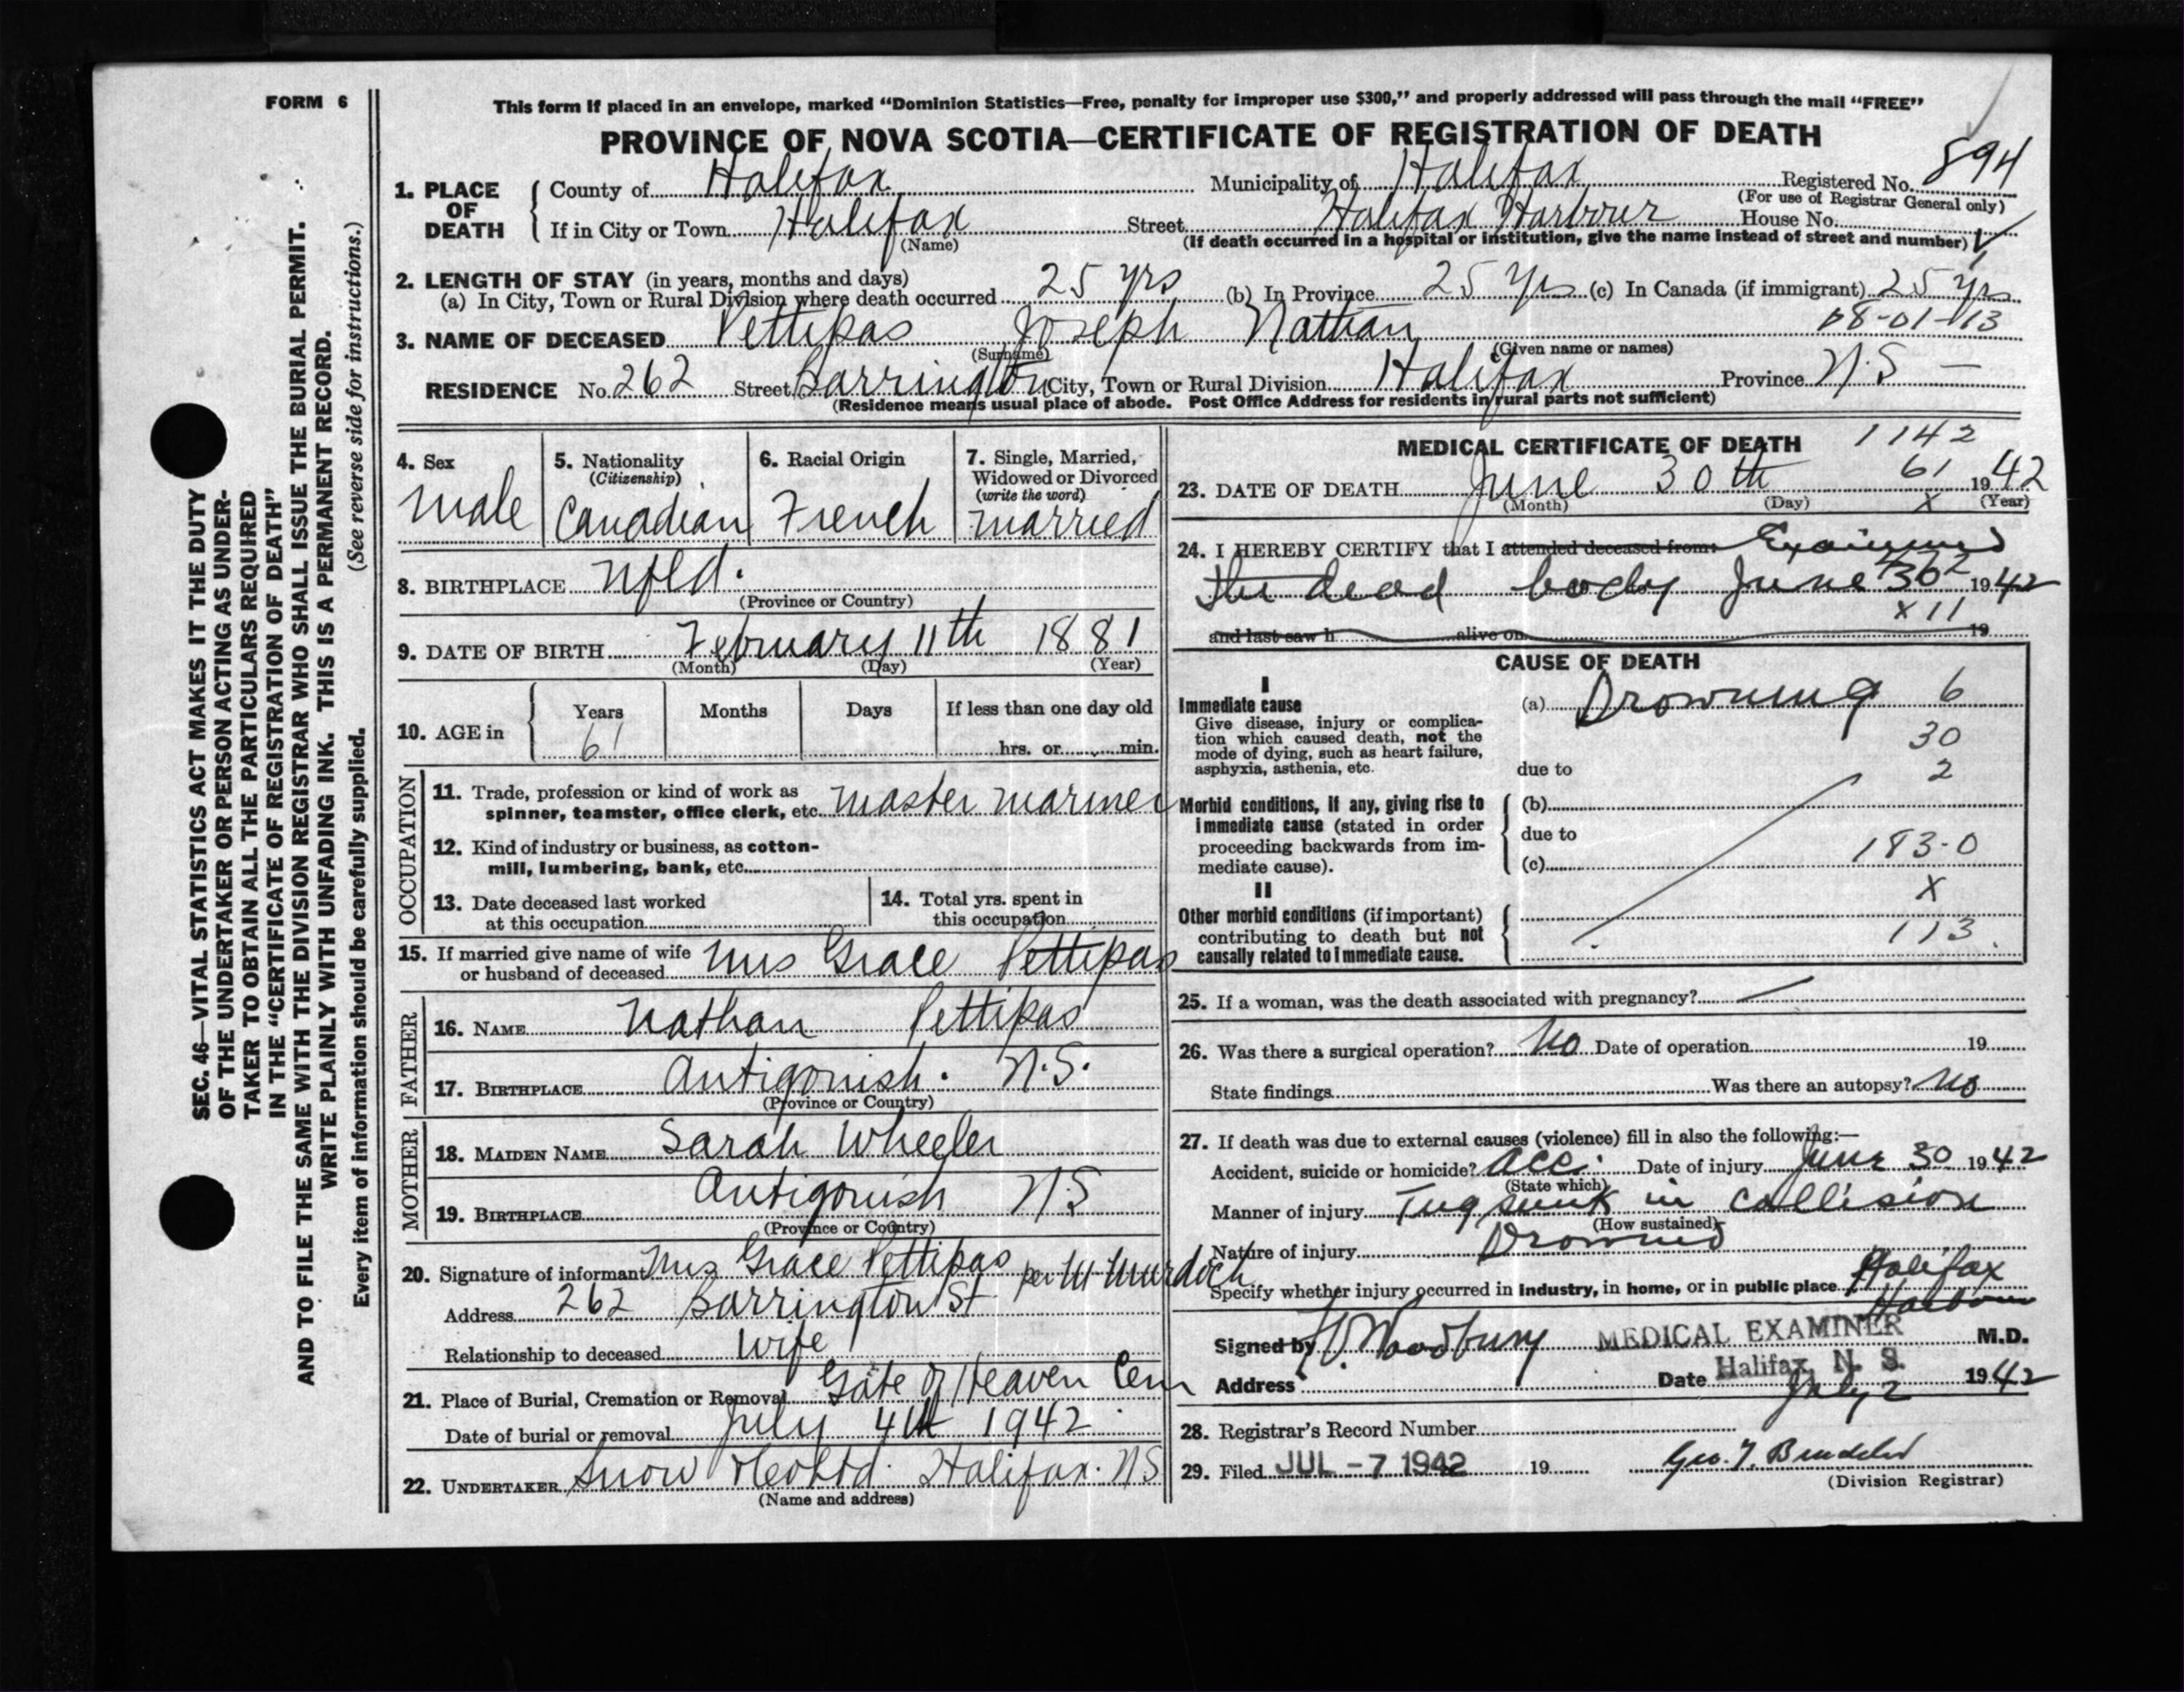 FORM 6
SEC. 46—VITAL STATISTICS ACT MAKES IT THE DUTY
OF THE UNDERTAKER OR PERSON ACTING AS UNDER-
TAKER TO OBTAIN ALL THE PARTICULARS REQUIRED
IN THE "CERTIFICATE OF REGISTRATION OF DEATH"
AND TO FILE THE SAME WITH THE DIVISION REGISTRAR WHO SHALL ISSUE THE BURIAL PERMIT.
WRITE PLAINLY WITH UNFADING INK. THIS IS A PERMANENT RECORD.
Every item of information should be carefully supplied. (See reverse side for instructions.)
This form if placed in an envelope, marked "Dominion Statistics—Free, penalty for improper use $300," and properly addressed will pass through the mail "FREE"
PROVINCE OF NOVA SCOTIA—CERTIFICATE OF REGISTRATION OF DEATH
1. PLACE OF DEATH
County of Halifax Municipality of Halifax Registered No. 894
(For use of Registrar General only)
If in City or Town Halifax Street Halifax Harbour House No.
(Name) (If death occurred in a hospital or institution, give the name instead of street and number)
2. LENGTH OF STAY (in years, months and days)
(a) In City, Town or Rural Division where death occurred 25 yrs (b) In Province 25 yrs (c) In Canada (if immigrant) 25 yrs
08-01-13
3. NAME OF DECEASED Pettipas Joseph Nathan
(Surname) (Given name or names)
RESIDENCE No. 262 Street Barrington City, Town or Rural Division Halifax Province N.S —
(Residence means usual place of abode. Post Office Address for residents in rural parts not sufficient)
4. Sex
male
5. Nationality
(Citizenship)
Canadian
6. Racial Origin
French
7. Single, Married,
Widowed or Divorced
(write the word)
married
8. BIRTHPLACE Nfld.
(Province or Country)
9. DATE OF BIRTH February 11th 1881
(Month) (Day) (Year)
10. AGE in
Years Months Days If less than one day old
61 hrs. or min.
OCCUPATION
11. Trade, profession or kind of work as
spinner, teamster, office clerk, etc. master mariner
12. Kind of industry or business, as cotton-
mill, lumbering, bank, etc.
13. Date deceased last worked
at this occupation
14. Total yrs. spent in
this occupation
15. If married give name of wife
or husband of deceased Mrs Grace Pettipas
FATHER
16. NAME Nathan Pettipas
17. BIRTHPLACE Antigonish. N.S.
(Province or Country)
MOTHER
18. MAIDEN NAME Sarah Wheeler
19. BIRTHPLACE Antigonish N.S
(Province or Country)
20. Signature of informant Mrs Grace Pettipas per M Murdoch
Address 262 Barrington St
Relationship to deceased Wife
21. Place of Burial, Cremation or Removal Gate of Heaven Cem
Date of burial or removal July 4th 1942
22. UNDERTAKER Snow & Co Ltd. Halifax. NS
(Name and address)
MEDICAL CERTIFICATE OF DEATH 1142
61
23. DATE OF DEATH June 30th 1942
(Month) (Day) X (Year)
24. I HEREBY CERTIFY that I attended deceased from: Examined
the dead body June 30 1942
X11
and last saw h alive on 19
CAUSE OF DEATH
I
Immediate cause
Give disease, injury or complica-
tion which caused death, not the
mode of dying, such as heart failure,
asphyxia, asthenia, etc.
(a) Drowning 6
30
due to 2
Morbid conditions, if any, giving rise to
immediate cause (stated in order
proceeding backwards from im-
mediate cause).
(b)
due to
(c) 183-0
X
II
Other morbid conditions (if important)
contributing to death but not
causally related to immediate cause.
113
25. If a woman, was the death associated with pregnancy? —
26. Was there a surgical operation? No Date of operation 19
State findings Was there an autopsy? No
27. If death was due to external causes (violence) fill in also the following:—
Accident, suicide or homicide? Acc. Date of injury June 30 1942
(State which)
Manner of injury Tug sunk in collision
(How sustained)
Nature of injury Drowned
Specify whether injury occurred in industry, in home, or in public place Halifax
Harbour
Signed by Woodbury MEDICAL EXAMINER M.D.
Address Date Halifax, N. S. July 2 1942
28. Registrar's Record Number
29. Filed JUL -7 1942 19
(Division Registrar)